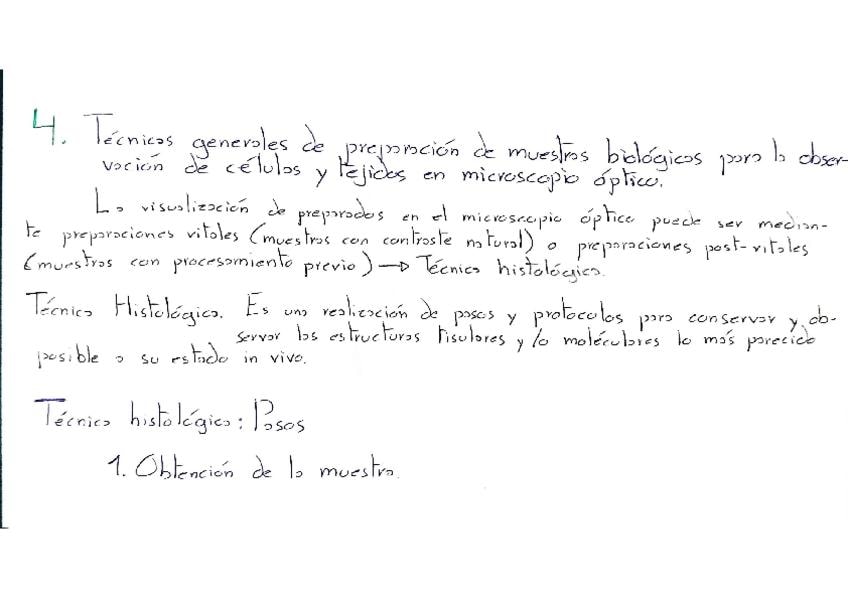 4. Técnicas generales de preparación de muestras biológicas para la obser-
vación de células y tejidos en microscopio óptico.
La visualización de preparados en el microscopio óptico puede ser median-
te preparaciones vitales (muestras con contraste natural) o preparaciones post-vitales
(muestras con procesamiento previo) → Técnica histológica.
Técnica Histológica. Es una realización de pasos y protocolos para conservar y ob-
servar las estructuras tisulares y/o moléculares lo más parecido
posible a su estado in vivo.
Técnica histológica: Pasos
1. Obtención de la muestra.